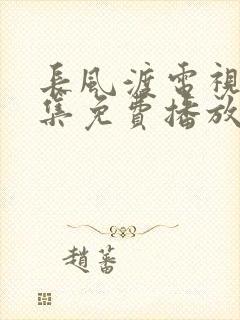 長風渡電視
集免費播放
趙蕃